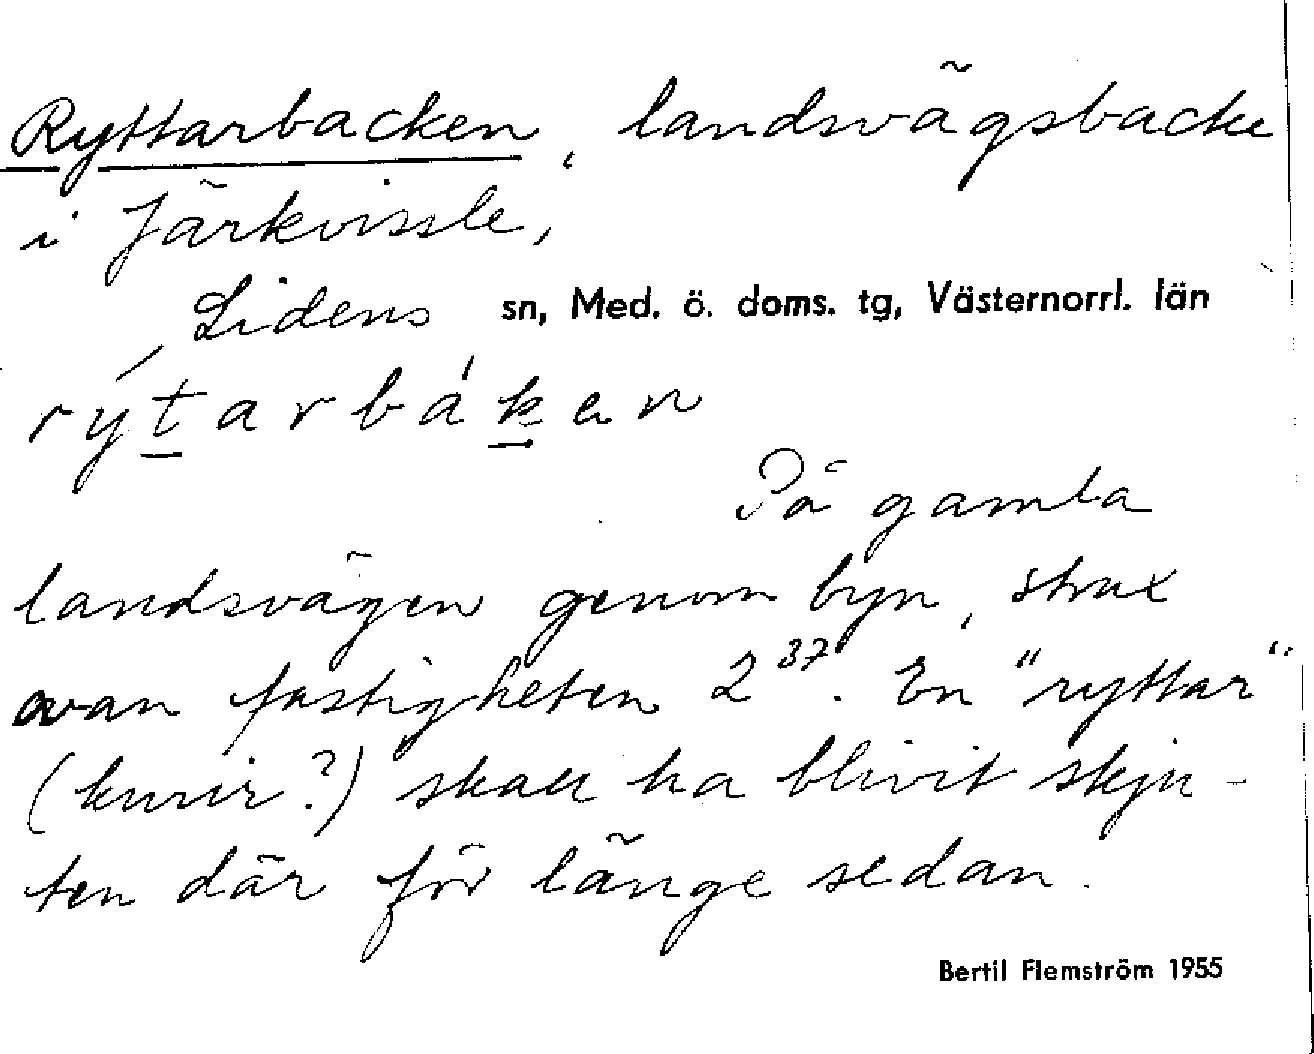 Ryttarbacken, landsvägsbacke
i Järkvissle,
Lidens sn, Med. ö. doms. tg, Västernorrl. län
rýtarbáken
På gamla
landsvägen genom byn, strax
ovan fastigheten 2³⁷. En "ryttar"
(kurir?) skall ha blivit skju-
ten där för länge sedan.
Bertil Flemström 1955